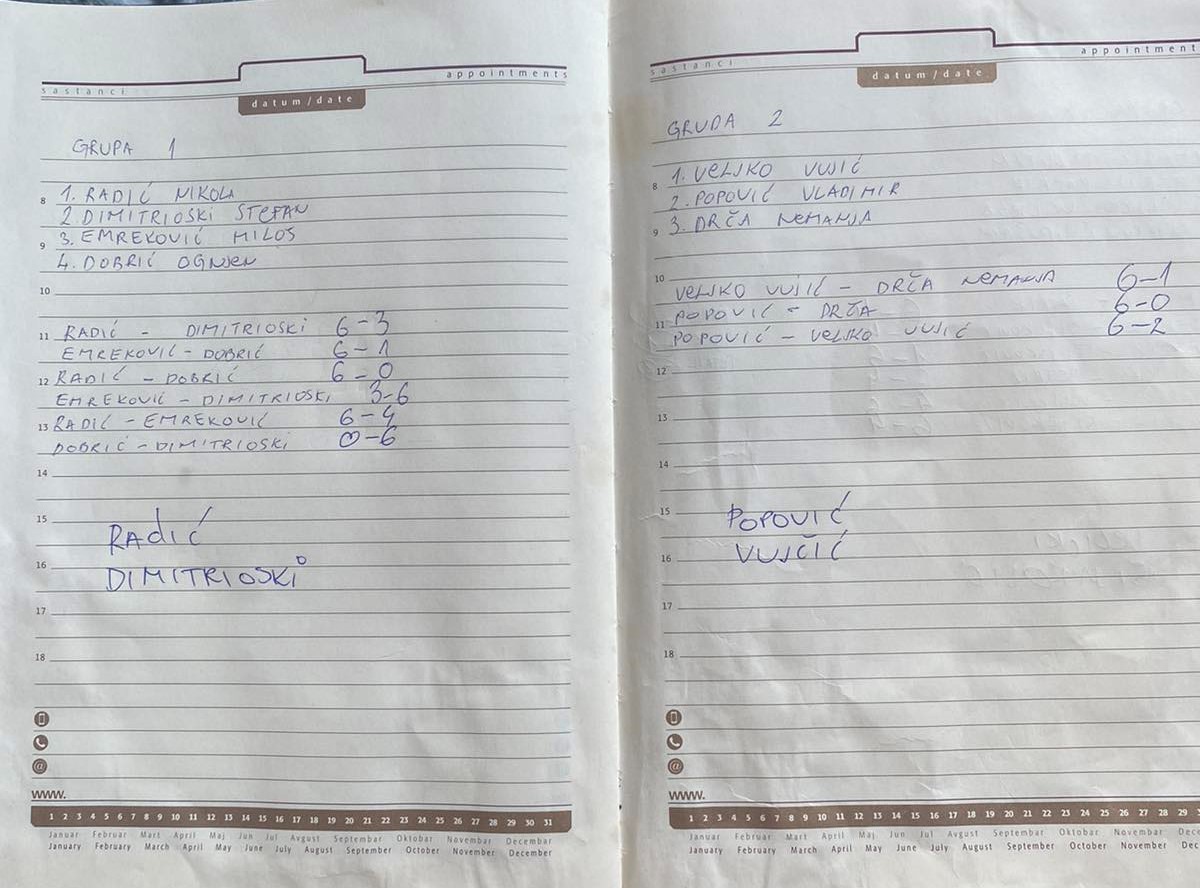 sastanci
appointments
datum/date
GRUPA 1
8 1. RADIĆ NIKOLA
2. DIMITRIOSKI STEFAN
9 3. EMREKOVIĆ MILOS
4. DOBRIĆ OGNJEN
10
11 RADIĆ - DIMITRIOSKI 6-3
EMREKOVIĆ - DOBRIĆ 6-1
12 RADIĆ - DOBRIĆ 6-0
EMREKOVIĆ - DIMITRIOSKI 3-6
13 RADIĆ - EMREKOVIĆ 6-4
DOBRIĆ - DIMITRIOSKI 0-6
14
15
RADIĆ
16
DIMITRIOSKI
17
18
@
www.
1 2 3 4 5 6 7 8 9 10 11 12 13 14 15 16 17 18 19 20 21 22 23 24 25 26 27 28 29 30 31
Januar Februar Mart April Maj Jun Jul Avgust Septembar Oktobar Novembar Decembar
January February March April May June July August September October November December
sastanci
appointment
datum/date
GRUDA 2
8 1. VELJKO VUJIĆ
2. POPOVIĆ VLADIMIR
9 3. DRČA NEMANJA
10
VELJKO VUJIĆ - DRČA NEMANJA 6-1
11 POPOVIĆ - DRČA 6-0
POPOVIĆ - VELJKO VUJIĆ 6-2
12
13
14
15 POPOVIĆ
16 VUJČIĆ
17
18
@
www.
1 2 3 4 5 6 7 8 9 10 11 12 13 14 15 16 17 18 19 20 21 22 23 24 25 26 27 28 29
Januar Februar Mart April Maj Jun Jul Avgust Septembar Oktobar Novembar Dec
January February March April May June July August September October November Dec